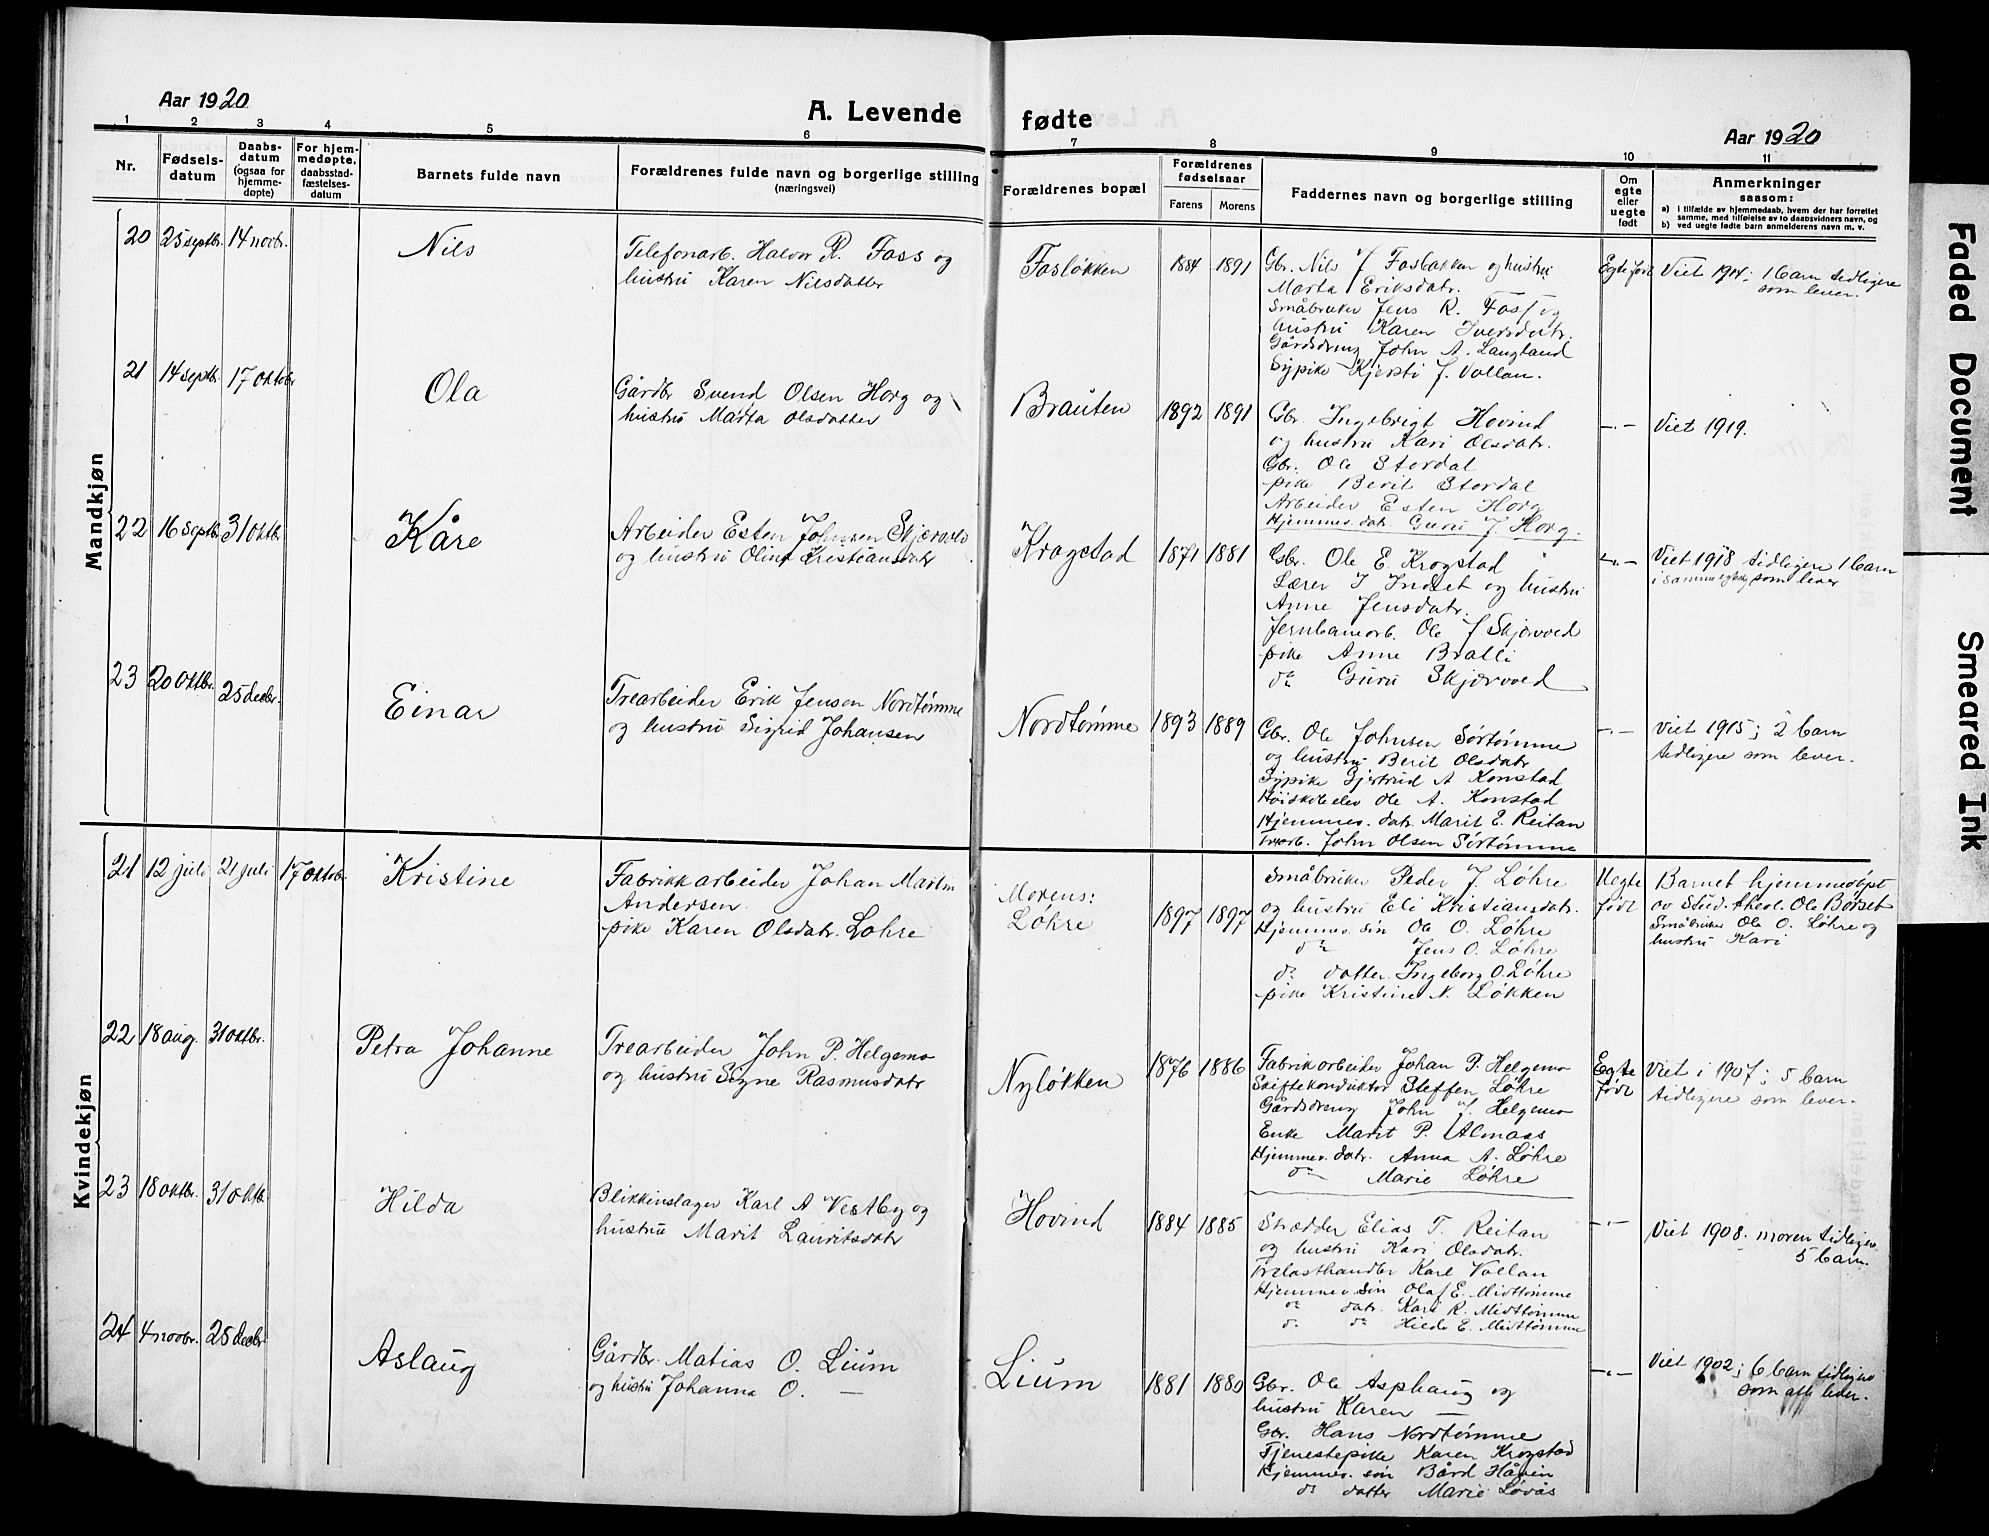 Aar 1920
A. Levende
1 2 3 4 5 6
Nr.
Fødsels-
datum
Daabs-
datum
(ogsaa for
hjemme-
døpte)
For hjem-
medøpte,
daabsstad-
fæstelses-
datum
Barnets fulde navn
Forældrenes fulde navn og borgerlige stilling
(næringsvei)
Mandkjøn
20 25 septbr. 14 novbr. Nils
Telefonarb. Halvor R. Foss og
hustru Karen Nilsdatter
21 14 septb. 17 oktobr Ola
Gårdbr Svend Olsen Horg og
hustru Marta Olsdatter
22 16 septb. 31 oktbr. Kåre
Arbeider Esten Johnsen
og hustru Olina Kristiansdatr
23 20 oktbr. 25 decbr. Einar
Trearbeider Erik Jensen Nordtømme
og hustru Sigrid Johansen
Kvindekjøn
21 12 juli 21 juli 17 oktob. Kristine
Fabrikkarbeider Johan Martin
Andersen.
pike Karen Olsdatr. Løhre
22 18 aug. 31 oktbr. Petra Johanne
Trearbeider John P. Helgemo
og hustru Signe Rasmusdatr
23 18 oktbr. 31 oktb. Hilda
Blikkenslager Karl A Vestby og
hustru Marit Lauritsdatr
24 4 novbr. 25 decbr Aslaug
Gårdbr. Matias O. Lium
og hustru Johanna O. —
fødte
Aar 1920
7 8 9 10 11
Forældrenes bopæl
Forældrenes
fødselsaar
Farens Morens
Faddernes navn og borgerlige stilling
Om
egte
eller
uegte
født
Anmerkninger
saasom:
a) i tilfælde av hjemmedaab, hvem der har forrettet
samme, med tilføielse av to daabsvidners navn, og
b) ved uegte født barn anmelderens navn m. v.
Fosløkken 1884 1891
Gbr. Nils J Fosbakken og hustru
Marta Eriksdatr.
Småbruker Jens R. Foss og
hustru Karen Iversdatr.
Gårdsdreng John A. Langland
Sypike Kjersti J. Vollan.
Egte født
Viet 1914; 1 barn tidligere
som lever.
Brauten 1892 1891
Gbr. Ingebrigt Hovind
og hustru Kari Olsdatr.
Gbr. Ole Stordal
pike Berit Stordal
Arbeider Esten Horg
Hjemmev. datr. Guru J Horg.
—"—
Viet 1919.
Krogstad 1871 1881
Gbr. Ole E. Krogstad
Lærer J Indset og hustru
Anne Jensdatr.
Jernbanearb. Ole J Skjervold
pike Anne Bralli
do Guru Skjervold
—"—
Viet 1918 tidligere 1 barn
i samme egtesk. som lever
Nordtømme 1893 1889
Gbr. Ole Johnsen Sørtømme
og hustru Berit Olsdatr
Sypike Gjertrud A Konstad
Høiskoleelev Ole A. Konstad
Hjemmev. datr. Marit E. Reitan
Trearb. John Olsen Sørtømme
—"—
Viet 1915; 2 barn
tidligere som lever.
Morens:
Løhre 1897 1897
Småbruker Peder J. Løhre
og hustru Eli Kristiansdatr.
Hjemmev. søn Ole O. Løhre
do Jens O. Løhre
do datter Ingeborg O. Løhre
pike Kristine N. Løkken
Uegte
født
Barnet hjemmedøpt
av Stud. theol. Ole Børset
Småbruker Ole O. Løhre og
hustru Kari
Nyløkken 1876 1886
Fabrikarbeider Johan P. Helgemo
Skiftekonduktør Steffen Løhre
Gårdsdreng John J. Helgemo
Enke Marit P. Almaas
Hjemmev. datr. Anna A. Løhre
do Marie Løhre
Egte
født
Viet i 1907; 5 barn
tidligere som lever.
Hovind 1884 1885
Skrædder Elias T. Reitan
og hustru Kari Olsdatr.
Trelasthandler Karl Vollan
Hjemmev søn Olaf E. Midttømme
do datr. Kari R. Midttømme
do do Hilda E. Midttømme
—"—
Viet 1908. moren tidligere
5 barn.
Lium 1881 1880
Gbr. Ole Asphaug og
hustru Karen —
Gbr. Hans Nordtømme
Tjenestepike Karen Krogstad
Hjemmev. søn Bård Håven
do datter Marie Løvås
—"—
Viet 1902; 6 barn tidligere
som alle lever.
Faded Document
Smeared Ink